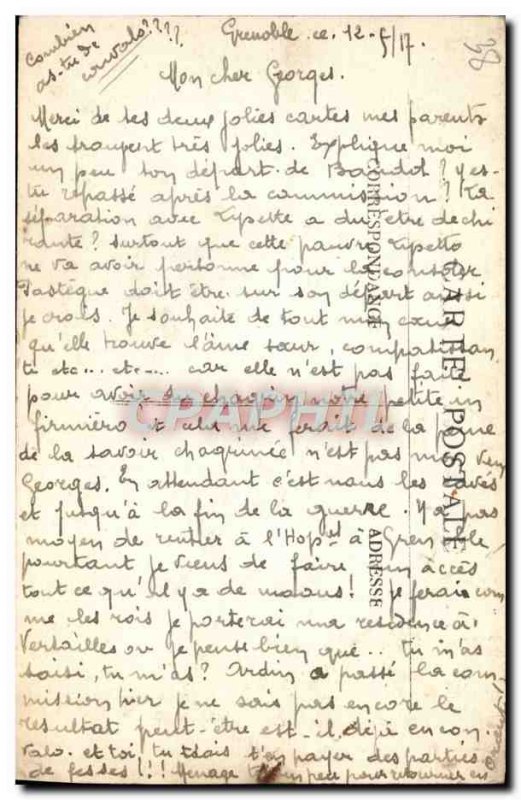 Combien
as-tu de
convalo????
Grenoble ce 12-5/17.
38
Mon cher Georges.
Merci de tes deux jolies cartes mes parents
les trouvent très jolies. Explique moi
un peu ton départ de Bandol? y es-
tu repassé après la commission? La
séparation avec Lipette a du être dechi
rante? surtout que cette pauvre Lipette
ne va avoir personne pour la consoler
Pastèque doit être sur son départ aussi
je crois. Je souhaite de tout mon cœur
qu'elle trouve l'âme sœur, compatissan
te etc... etc... car elle n'est pas faite
pour avoir du chagrin notre petite in
firmière et cela me ferait de la peine
de la savoir chagrinée n'est pas mon vieux
Georges. En attendant c'est nous les
et jusqu'à la fin de la guerre. Y a pas
moyen de rentrer à l'Hop^al à Grenoble
pourtant je viens de faire un accès
tout ce qu'il y a de maous! je ferais com
me les rois je porterai ma résidence à
Versailles ou je pense bien que... tu m'as
saisi, tu m'as? Ardin a passé la com
mission hier je ne sais pas encore le
résultat peut-être est-il déjà en con
valo. et toi, tu dois t'en payer des parties
de fesses!!! Menage toi un peu pour retourner en
CARTE POSTALE
CORRESPONDANCE
ADRESSE
CPAPHIL